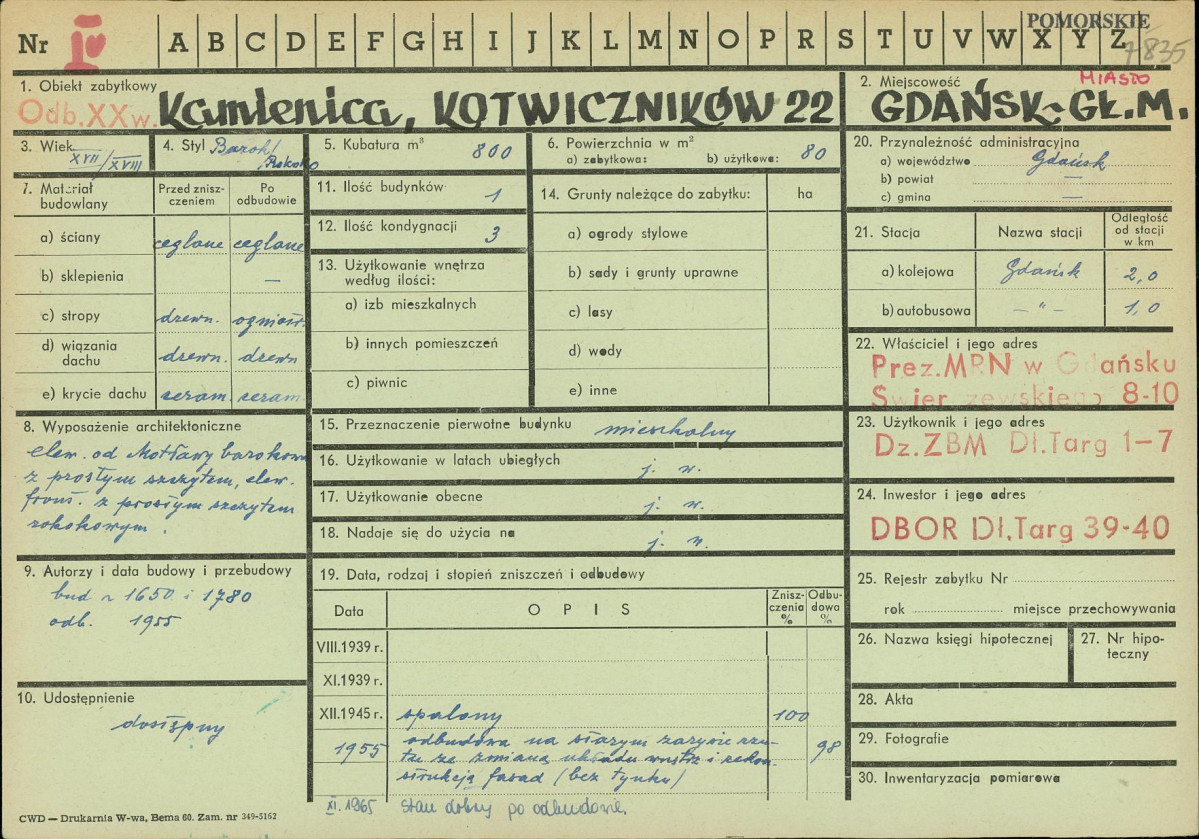 POMORSKIE
7835
Nr
A B C D E F G H I J K L M N O P R S T U V W X Y Z
1. Obiekt zabytkowy
Odb.XXw.
Kamienica, KOTWICZNIKÓW 22
2. Miejscowość
MIASTO
GDAŃSK-GŁ.M.
3. Wiek
XVII/XVIII
4. Styl Barok/
Rokoko
5. Kubatura m³ 800
6. Powierzchnia w m²
a) zabytkowa: b) użytkowa: 80
20. Przynależność administracyjna
a) województwo Gdańsk
b) powiat —
c) gmina —
7. Materiał budowlany
Przed zniszczeniem
Po odbudowie
a) ściany ceglane ceglane
b) sklepienia —
c) stropy drewn. ogniotr.
d) wiązania dachu drewn. drewn
e) krycie dachu ceram. ceram.
11. Ilość budynków 1
12. Ilość kondygnacji 3
13. Użytkowanie wnętrza
według ilości:
a) izb mieszkalnych
b) innych pomieszczeń
c) piwnic
14. Grunty należące do zabytku: ha
a) ogrody stylowe
b) sady i grunty uprawne
c) lasy
d) wody
e) inne
21. Stacja Nazwa stacji Odległość od stacji w km
a) kolejowa Gdańsk 2,0
b) autobusowa — " — 1,0
22. Właściciel i jego adres
Prez.MRN w Gdańsku
Świerczewskiego 8-10
8. Wyposażenie architektoniczne
elew. od Motławy barokowa
z prostym szczytem, elew.
front. z prostym szczytem
rokokowym.
15. Przeznaczenie pierwotne budynku mieszkalny
16. Użytkowanie w latach ubiegłych j. w.
17. Użytkowanie obecne j. w.
18. Nadaje się do użycia na j. w.
23. Użytkownik i jego adres
Dz.ZBM Dł.Targ 1-7
24. Inwestor i jego adres
DBOR Dł.Targ 39-40
9. Autorzy i data budowy i przebudowy
bud ~ 1650 i 1780
odb. 1955
10. Udostępnienie
dostępny
19. Data, rodzaj i stopień zniszczeń i odbudowy
Data OPIS Zniszczenia % Odbudowa %
VIII.1939 r.
XI.1939 r.
XII.1945 r. spalony 100
1955 odbudowa na starym zarysie rzu-
tu ze zmianą układu wnętrz i rekon-
strukcją fasad (bez tynku) 98
XI.1965 Stan dobry po odbudowie.
25. Rejestr zabytku Nr
rok miejsce przechowywania
26. Nazwa księgi hipotecznej
27. Nr hipoteczny
28. Akta
29. Fotografie
30. Inwentaryzacja pomiarowa
CWD — Drukarnia W-wa, Bema 60. Zam. nr 349-5162